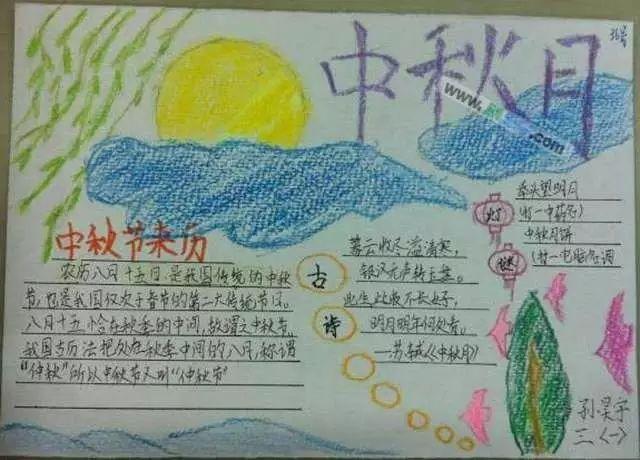 中秋月
36号
www.
.com
中秋节来历
农历八月十五日是我国传统的中秋
节,也是我国仅次于春节的第二大传统节日。
八月十五恰在秋季的中间,故谓之中秋节,
我国古历法把处在秋季中间的八月,称谓
“仲秋”所以中秋节又叫“仲秋节”
古诗
暮云收尽溢清寒,
银汉无声转玉盘。
此生此夜不长好,
明月明年何处看。
—苏轼《中秋月》
灯谜
举头望明月
(打一中药名)
中秋月饼
(打一电脑名词
孙昊宇
三〈一〉